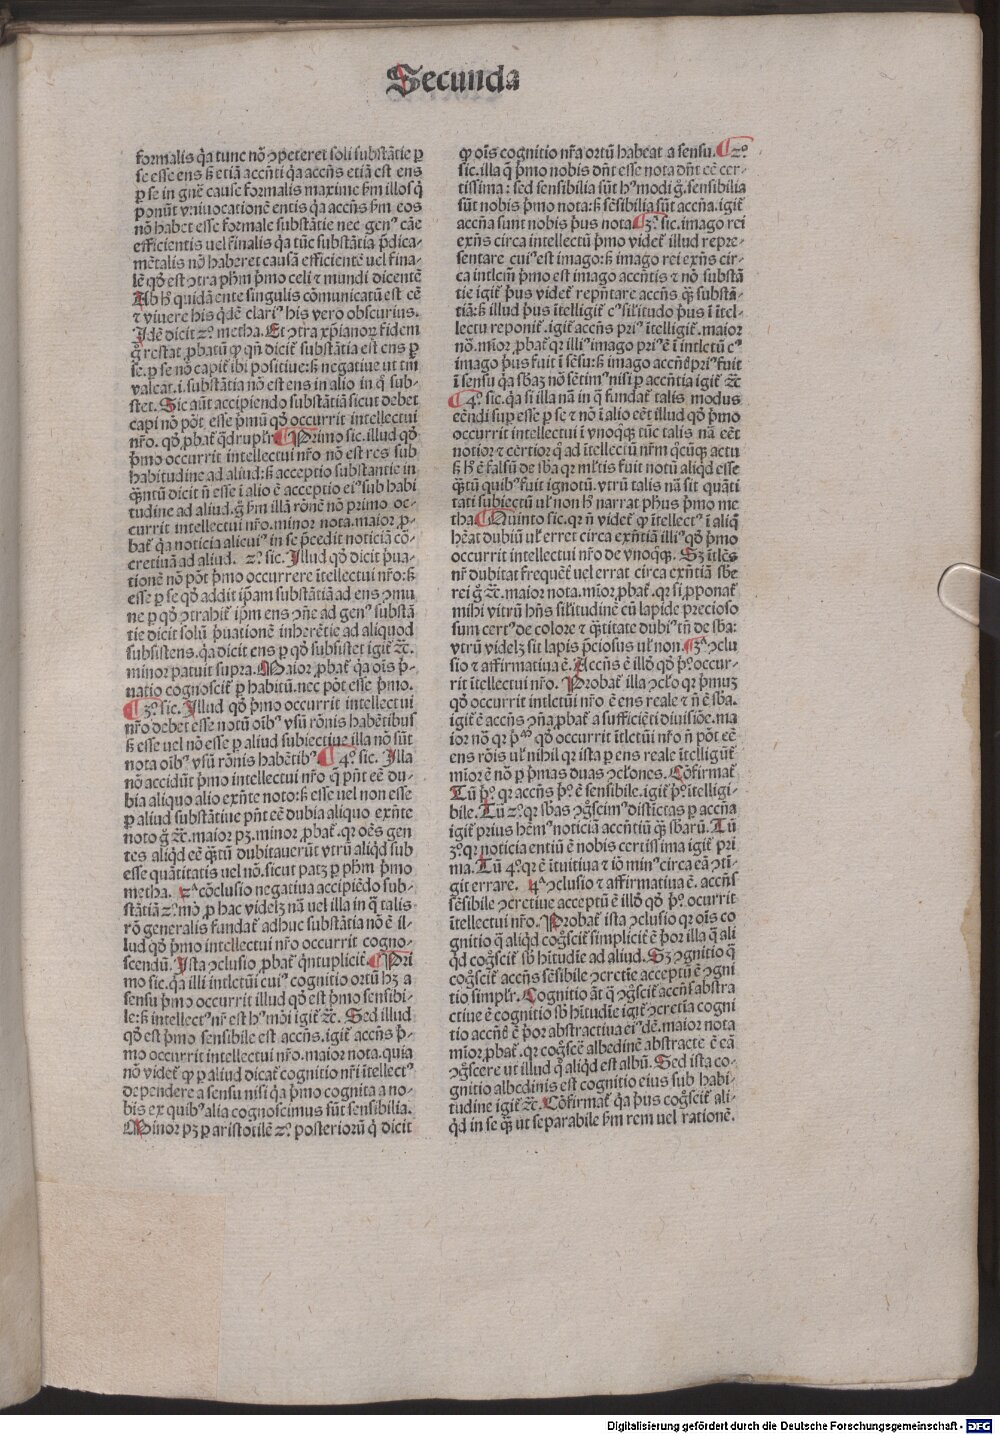 Secunda
formalis q̇a tunc nõ ꝯpeteret soli substãtie ꝑ
se esse ens ß etiã accñti q̇a accñs etiã est ens
ꝑ se in gñe cause formalis maxime ẜm illos q̇
ponũt vniuocationẽ entis q̇a accñs ẜm eos
nõ habet esse formale substãtie nec genꝰ cãe
efficientis uel finalis q̇a tũc substãtia p̃dica-
mẽtalis nõ haberet causã efficientẽ uel fina-
lẽ qđ est ꝯtra pħm p̃mo celi ⁊ mundi dicentẽ
Ab hͦ quidã ente singulis cõmunicatũ est eẽ
⁊ viuere his q̇dẽ clariꝰ his vero obscurius.
Idẽ dicit zͦ. metha. Et ꝯtra xp̃ianoꝝ fidem
g̊ restat ꝓbatũ ꝙ qñ dicit̃ substãtia est ens ꝑ
se. ꝑ se nõ capit̃ ibi positiue: ß negatiue ut tm̃
valeat. i. substãtia nõ est ens in alio in q̊ sub-
stet. Sic aũt accipiendo substãtiã sicut debet
capi nõ põt esse p̃mũ qđ occurrit intellectui
nr̃o. qđ ꝓbat̃ q̇druplr̃ Primo sic. illud qđ
p̃mo occurrit intellectui nr̃o nõ est res sub
habitudine ad aliud: ß acceptio substantie in
q̃ntũ dicit ñ esse ĩ alio ẽ acceptio eiꝰ sub habi
tudine ad aliud. g̊ ẜm illã rõnẽ nõ primo oc-
currit intellectui nr̃o. minor nota. maior ꝓ-
bat̃ q̇a noticia alicuiꝰ in se p̃cedit noticiã cõ-
cretiuã ad aliud. zͦ. sic. Illud qđ dicit p̃ua-
tionẽ nõ põt p̃mo occurrere ĩtellectui nr̃o: ß
esse ꝑ se qđ addit ip̃am substãtiã ad ens ꝯmu
ne ꝑ qđ ꝯtrahit̃ ip̃m ens ꝯñe ad genꝰ substã
tie dicit solũ p̃uationẽ inherẽtie ad aliquod
subsistens. q̇a dicit ens ꝑ qđ subsistet igit̃ ⁊c̃.
minor patuit supra. Maior ꝓbat̃ q̇a oĩs p̃-
uatio cognoscit̃ ꝑ habitũ. nec põt esse p̃mo.
3ͦ. sic. Illud qđ p̃mo occurrit intellectui
nr̃o debet esse notũ oĩbꝰ vsũ rõnis habẽtibus
ß esse uel nõ esse ꝑ aliud subiectiue illa nõ sũt
nota oĩbꝰ vsũ rõnis habẽtibꝰ 4ͦ. sic. Illa
nõ accidũt p̃mo intellectui nr̃o q̃ pñt eẽ du-
bia aliquo alio exñte noto: ß esse uel non esse
ꝑ aliud substãtiue pñt eẽ dubia aliquo exñte
noto g̊ ⁊c̃. maior pꝫ. minor ꝓbat̃. qꝛ oẽs gen
tes aliqđ eẽ q̃tũ dubitauerũt vtrũ aliqđ sub
esse quãtitatis uel nõ. sicut patꝫ ꝑ pħm p̃mo
metha. zª cõclusio negatiua accipiẽdo sub-
stãtiã zͦ. mõ ꝓ hac videlꝫ nã uel illa in q̃ talis
rõ generalis fundat̃ adhuc substãtia nõ ẽ il-
lud qđ p̃mo intellectui nr̃o occurrit cogno-
scendũ. Ista ꝯclusio ꝓbat̃ q̇ntuplicit̃. Pri
mo sic. q̇a illi intlctũi cuiꝰ cognitio ortũ hꝫ a
sensu p̃mo occurrit illud qđ est p̃mo sensibi-
le: ß intellectꝰ nr̃ est hꝰ mõi igit̃ ⁊c̃. Sed illud
qđ est p̃mo sensibile est accñs. igit̃ accñs p̃-
mo occurrit intellectui nr̃o. maior nota. quia
nõ videt̃ ꝙ ꝑ aliud dicat̃ cognitio nr̃i ĩtellectꝰ
dependere a sensu nisi q̇a p̃mo cognita a no-
bis ex quibꝰ alia cognoscimus sũt sensibilia.
Minor pꝫ ꝑ aristotilẽ zͦ. posteriorũ q̇ dicit
ꝙ oĩs cognitio nr̃a ortũ habeat a sensu. zͦ.
sic. illa q̃ p̃mo nobis dñt esse nota dñt eẽ cer-
tissima: sed sensibilia sũt hꝰ modi g̊. sensibilia
sũt nobis p̃mo nota: ß sẽsibilia sũt accña. igit̃
accña sunt nobis p̃us nota 3ͦ. sic. imago rei
exñs circa intellectũ p̃mo videt̃ illud repre-
sentare cuiꝰ est imago: ß imago rei exñs cir-
ca intlcm̃ p̃mo est imago accñtis ⁊ nõ substã
tie igit̃ p̃us videt̃ rep̃ntare accñs q̃ substã-
tiã: ß illud p̃us ĩtelligit̃ cꝰ sĩlitudo p̃us ĩ ĩtel-
lectu reponit̃. igit̃ accñs priꝰ ĩtelligit̃. maior
nõ. mĩor ꝓbat̃ qꝛ illiꝰ imago priꝰ ẽ ĩ intlctu cꝰ
imago p̃us fuit ĩ sẽsu: ß imago accñẽ priꝰ fuit
ĩ sensu q̇a sb̃aꝫ nõ sẽtimꝰ nisi ꝑ accñtia igit̃ ⁊c̃
4ͦ. sic. q̇a si illa nã in q̃ fundat̃ talis modus
eẽndi suꝑ esse ꝑ se ⁊ nõ ĩ alio eẽt illud qđ p̃mo
occurrit intellectui ĩ vnoqq̃ tũc talis nã eẽt
notior ⁊ certior q̃ ad ĩtellectũ nr̃m q̊cũq̃ actu
ß hͦ ẽ falsũ de sb̃a qꝛ ml̃tis fuit notũ aliqđ esse
q̃tũ quibꝰ fuit ignotũ. vtrũ talis nã sit quãti
tati subiectũ ul̃ non hͦ narrat pħus p̃mo me
tha. Quinto sic. qꝛ ñ videt̃ ꝙ ĩtellectꝰ ĩ aliq̊
hẽat dubiũ ul̃ erret circa exñtiã illiꝰ qđ p̃mo
occurrit intellectui nr̃o de vnoqq̃. Sꝫ ĩtlẽs
nr̃ dubitat frequẽt̃ uel errat circa exñtiã sb̃e
rei g̊ ⁊c̃. maior nota. mĩor ꝓbat̃. qꝛ si ꝓponat̃
mihi vitrũ hñs sĩlitudinẽ cũ lapide precioso
sum certꝰ de colore ⁊ q̃titate dubiꝰ tñ de sb̃a:
vtrũ videlꝫ sit lapis p̃ciosus ul̃ non. 3ª ꝯclu
sio ⁊ affirmatiua ẽ. Accñs ẽ illđ qđ pͦ. occur-
rit ĩtellectui nr̃o. Probat̃ illa ꝯclo qꝛ p̃muꝫ
qđ occurrit intlctũi nr̃o ẽ ens reale ⁊ ñ ẽ sb̃a.
igit̃ ẽ accñs ꝯña ꝓbat̃ a sufficiẽti diuisiõe. ma
ior nõ qꝛ p̃m qđ occurrit ĩtlctũi nr̃o ñ põt eẽ
ens rõis ul̃ nihil qꝛ ista ꝑ ens reale ĩtelligũt̃
mĩor ẽ nõ ꝑ p̃mas duas ꝯclones. Cõfirmat̃
Tũ pͦ. qꝛ accñs pͦ. ẽ sensibile. igit̃ pͦ. ĩtelligi-
bile. Tũ zͦ. qꝛ sb̃as ꝯg̃scimꝰ distĩctas ꝑ accña
igit̃ prius hẽmꝰ noticiã accñtiũ q̃ sb̃arũ. Tũ
3ͦ. qꝛ noticia entiũ ẽ nobis certissima igit̃ pri
ma. Tũ 4ͦ. qꝛ ẽ ĩtuitiua ⁊ iõ minꝰ circa eã ꝯtĩ-
git errare. 4ª ꝯclusio ⁊ affirmatiua ẽ. accñs
sẽsibile ꝯcretiue acceptũ ẽ illđ qđ pͦ. ocurrit
ĩtellectui nr̃o. Probat̃ ista ꝯclusio qꝛ oĩs co
gnitio q̃ aliqđ cog̃scit̃ simplicit̃ ẽ p̃or illa q̃ ali
qđ cog̃scit̃ sb̃ hĩtudĩe ad aliud. Sꝫ ꝯgnitio q̃
cog̃scit̃ accñs sẽsibile ꝯcretie acceptũ ẽ ꝯgni
tio simplr̃. Cognitio ãt q̃ ꝯg̃scit̃ accñs abstra
ctiue ẽ cognitio sb̃ hĩtudĩe igit̃ ꝯcretia cogni
tio accñẽ ẽ p̃or abstractiua eiꝰdẽ. maior nota
mĩor ꝓbat̃. qꝛ cog̃scẽ albedinẽ abstracte ẽ eã
ꝯg̃scere ut illud q̊ aliqđ est albũ. Sed ista co-
gnitio albedinis est cognitio eius sub habi-
tudine igit̃ ⁊c̃. Cõfirmat̃ q̇a p̃us cog̃scit̃ ali-
qđ in se q̃ ut separabile ẜm rem uel rationẽ.
Digitalisierung gefördert durch die Deutsche Forschungsgemeinschaft - DFG